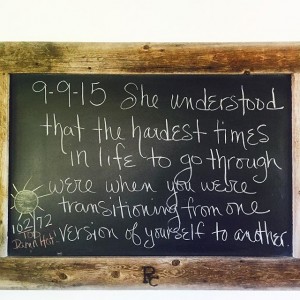 9-9-15 She understood
that the hardest times
in life to go through
were when you were
transitioning from one
version of yourself to another.
102/72
Too
Damn Hot!